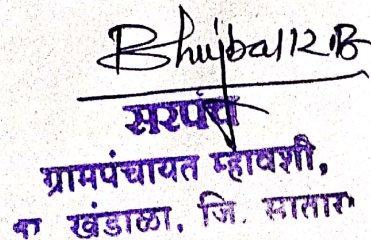 Bhujbal R.B
सरपंच
ग्रामपंचायत म्हावशी,
खंडाळा, जि. सातारा